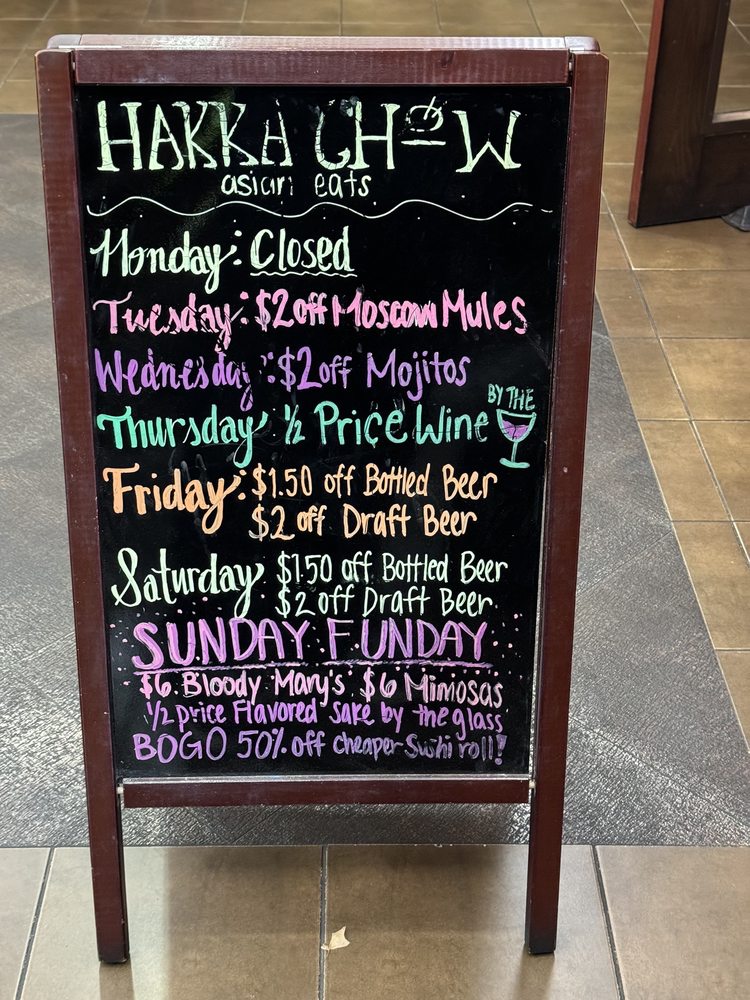 HAKKA CHOW
asian eats
Monday: Closed
Tuesday: $2 off Moscow Mules
Wednesday: $2 off Mojitos
Thursday: ½ Price Wine BY THE
Friday: $1.50 off Bottled Beer
$2 off Draft Beer
Saturday: $1.50 off Bottled Beer
$2 off Draft Beer
SUNDAY FUNDAY
$6 Bloody Mary's $6 Mimosas
½ price Flavored Sake by the glass
BOGO 50% off cheaper Sushi roll!